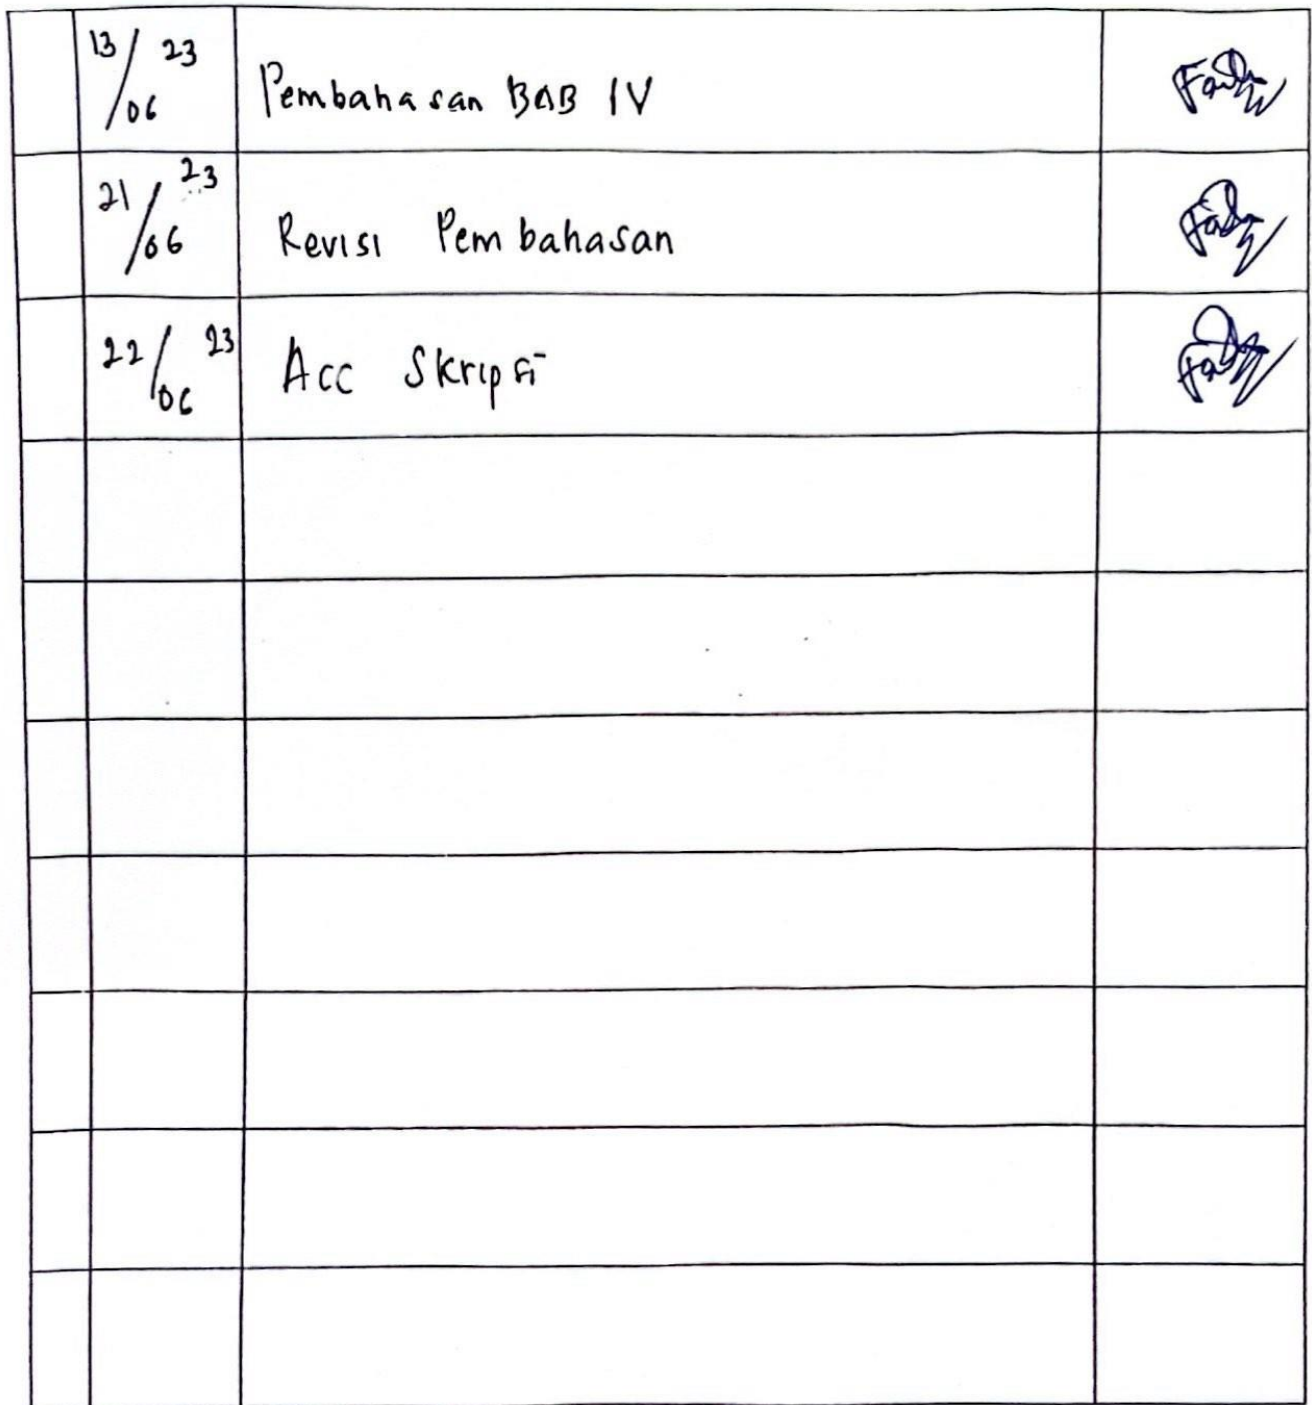 13/06 23 Pembahasan BAB IV
21/06 23 Revisi Pembahasan
22/06 23 Acc Skripsi